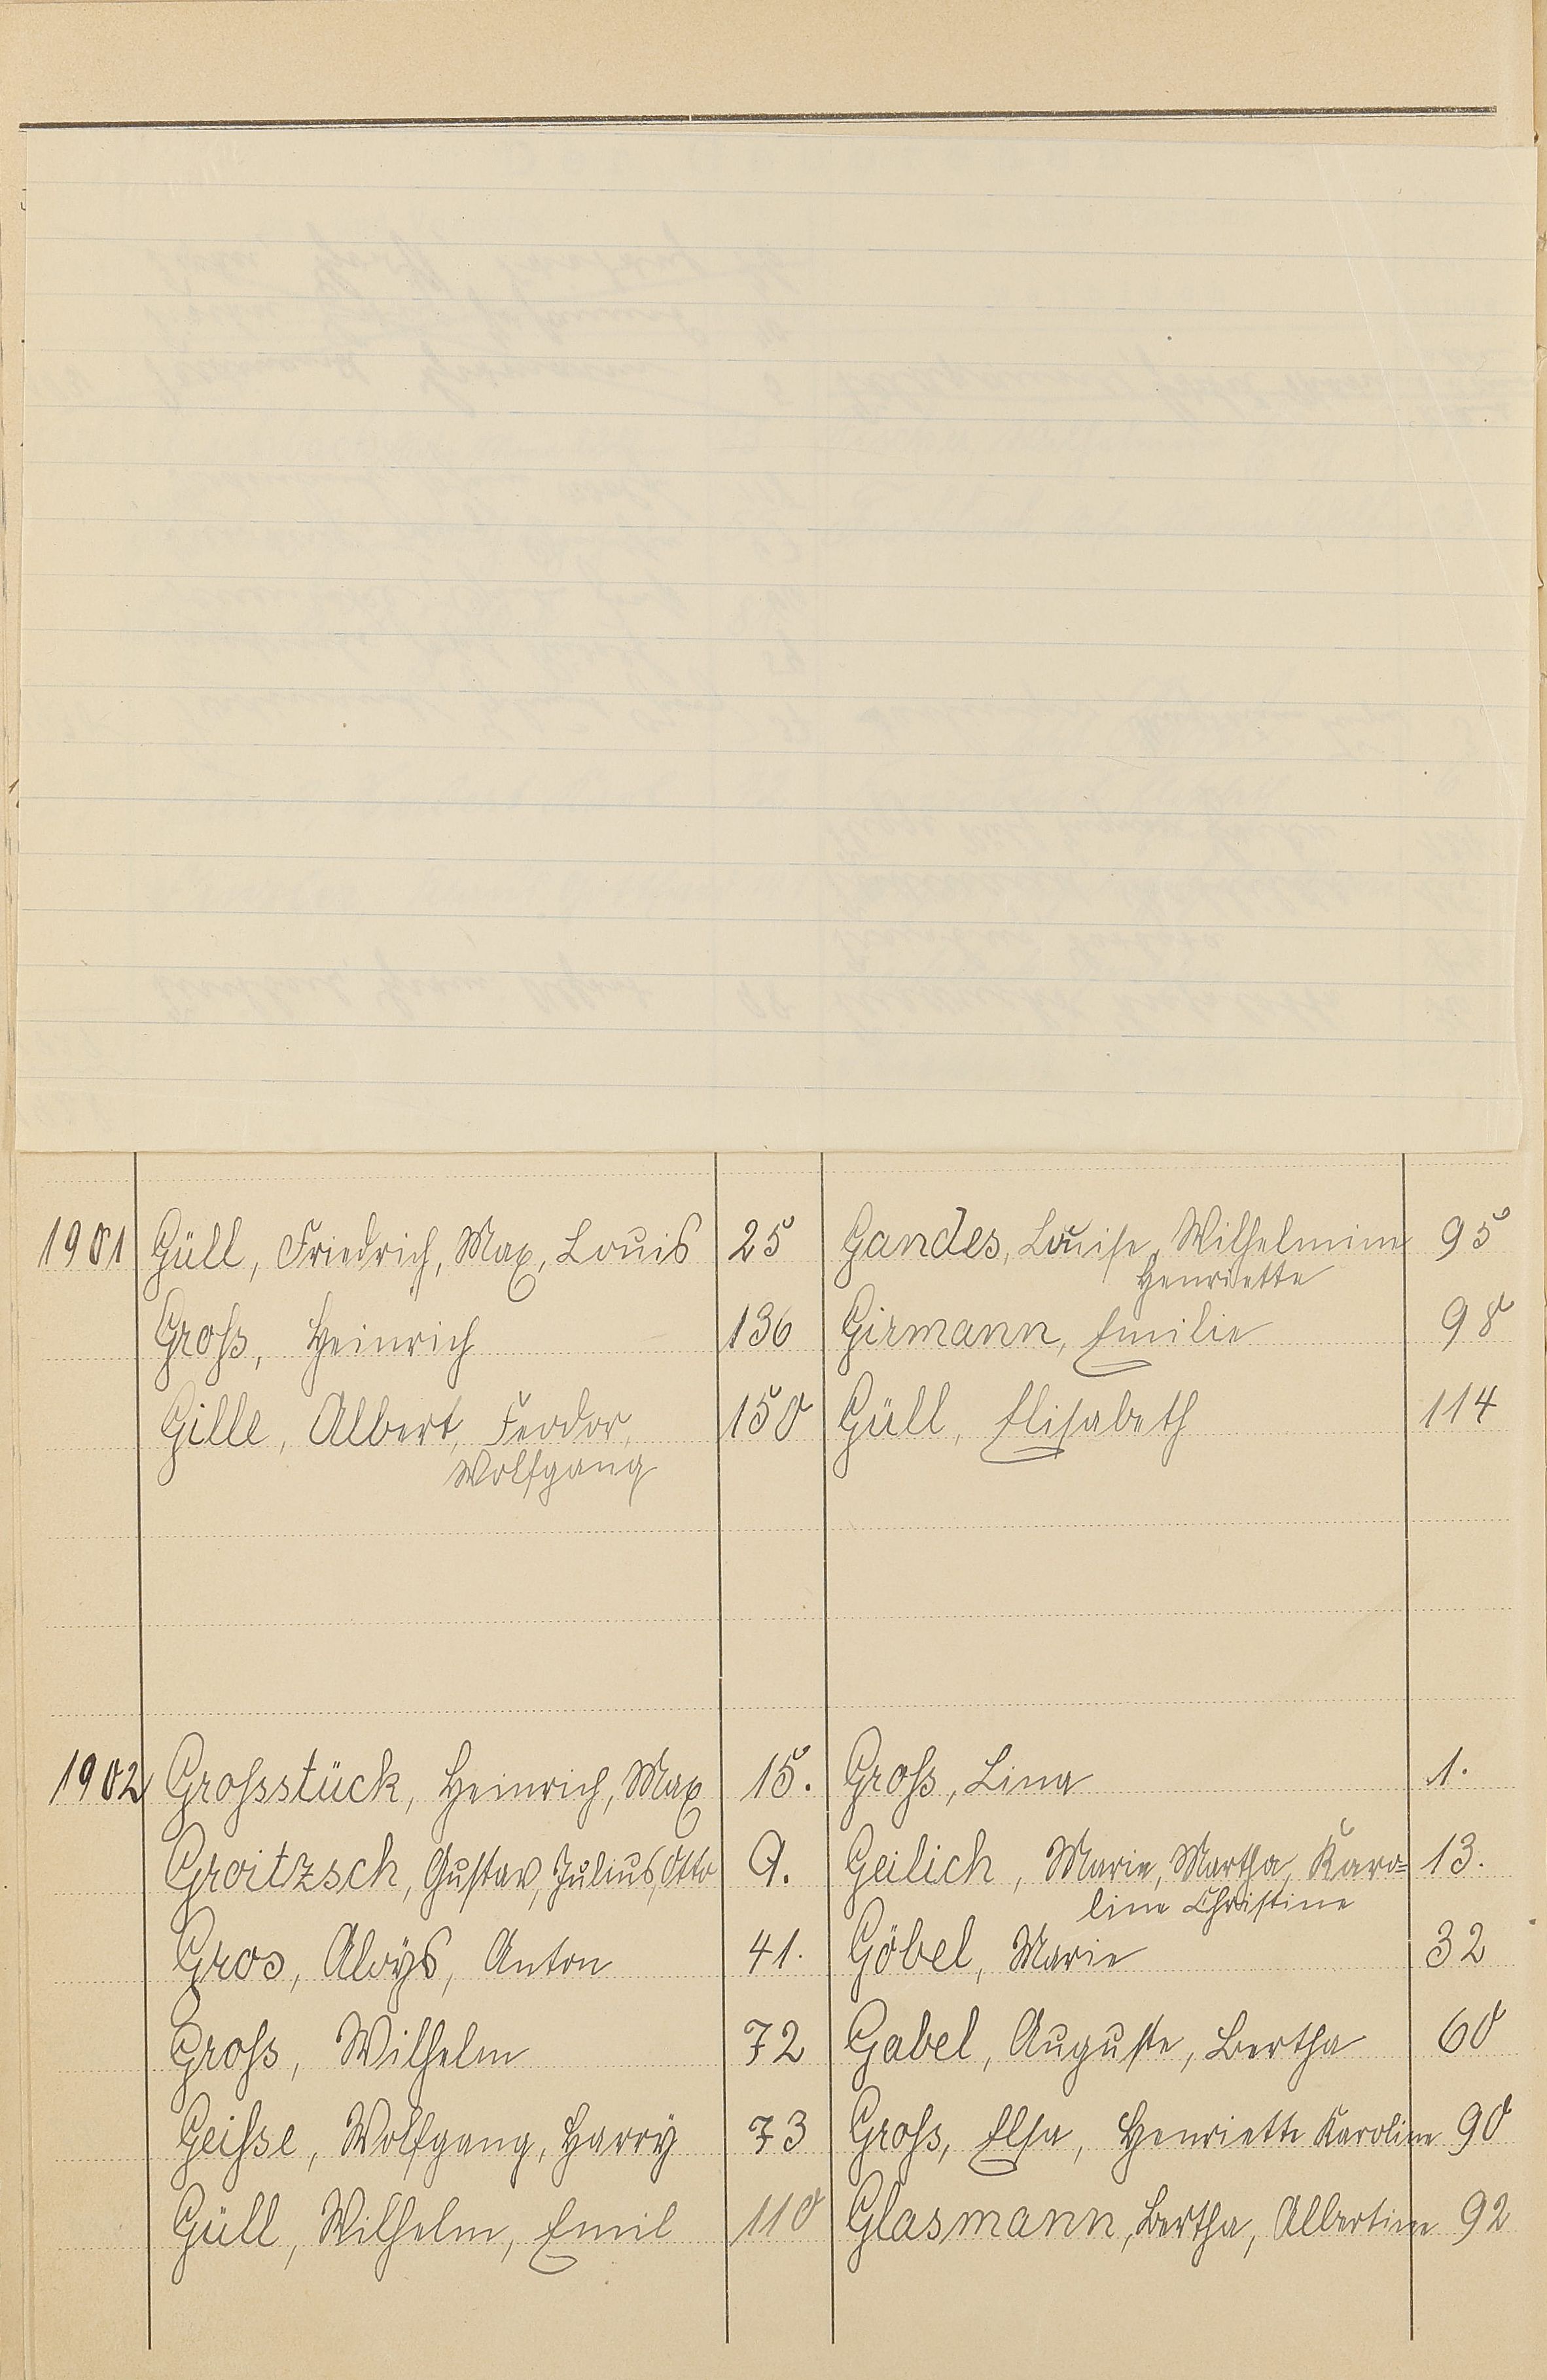 1901 Güll, Friedrich, Max, Louis 25 Gandes, Louise, Wilhelmine 95
Henriette
Groß, Heinrich 136 Girmann, Emilie 98
Gille, Albert, Feodor, 150 Güll, Elisabeth 114
Wolfgang
1902 Großstück, Heinrich, Max 15. Groß, Lina 1.
Groitzsch, Gustav, Julius, Otto 9. Geilich, Marie, Martha, Karo=13.
line Christine
Gros, Aloÿs, Anton 41. Göbel, Marie 32
Groß, Wilhelm 72 Gabel, Auguste, Bertha 60
Geiße, Wolfgang, Harrÿ 73 Groß, Elsa, Henriette Karoline 90
Güll, Wilhelm, Emil 110 Glasmann, Bertha, Albertine 92